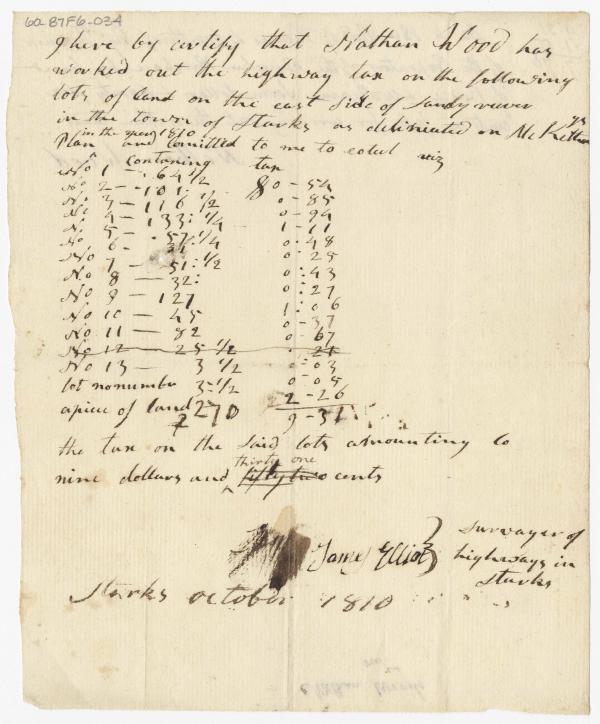 6a 87F6-034
I here by certify that Nathan Wood has
worked out the highway tax on the following
lots of land on the east side of Sandy rever
in the town of Starks as deliniated on Mc Kechnies
in the year 1810
Plan and comitted to me to colect viz
contuning tax
No 1 — 64 1/2 $0-54
No 2 — 101: 0-85
No 3 — 116 1/2 0-94
No 4 — 133:1/4 1-11
No 5 — 57:1/4 0:48
No 6 - 0:25
No 7 — 51:1/2 0:43
No 8 — 32: 0:27
No 9 — 127 1:06
No 10 — 45 0-37
No 11 — 82 0-67
No 12 — 25 1/2 21
No 13 — 3 1/2 0-03
lot nonumbr 3-1/2 0-05
a piece of land 270 2-26
9-31
the tax on the said lots amounting to
thirty one
nine dollars and fifty two cents
James Elliot } Survayer of
highways in
Starks
Starks october 1810